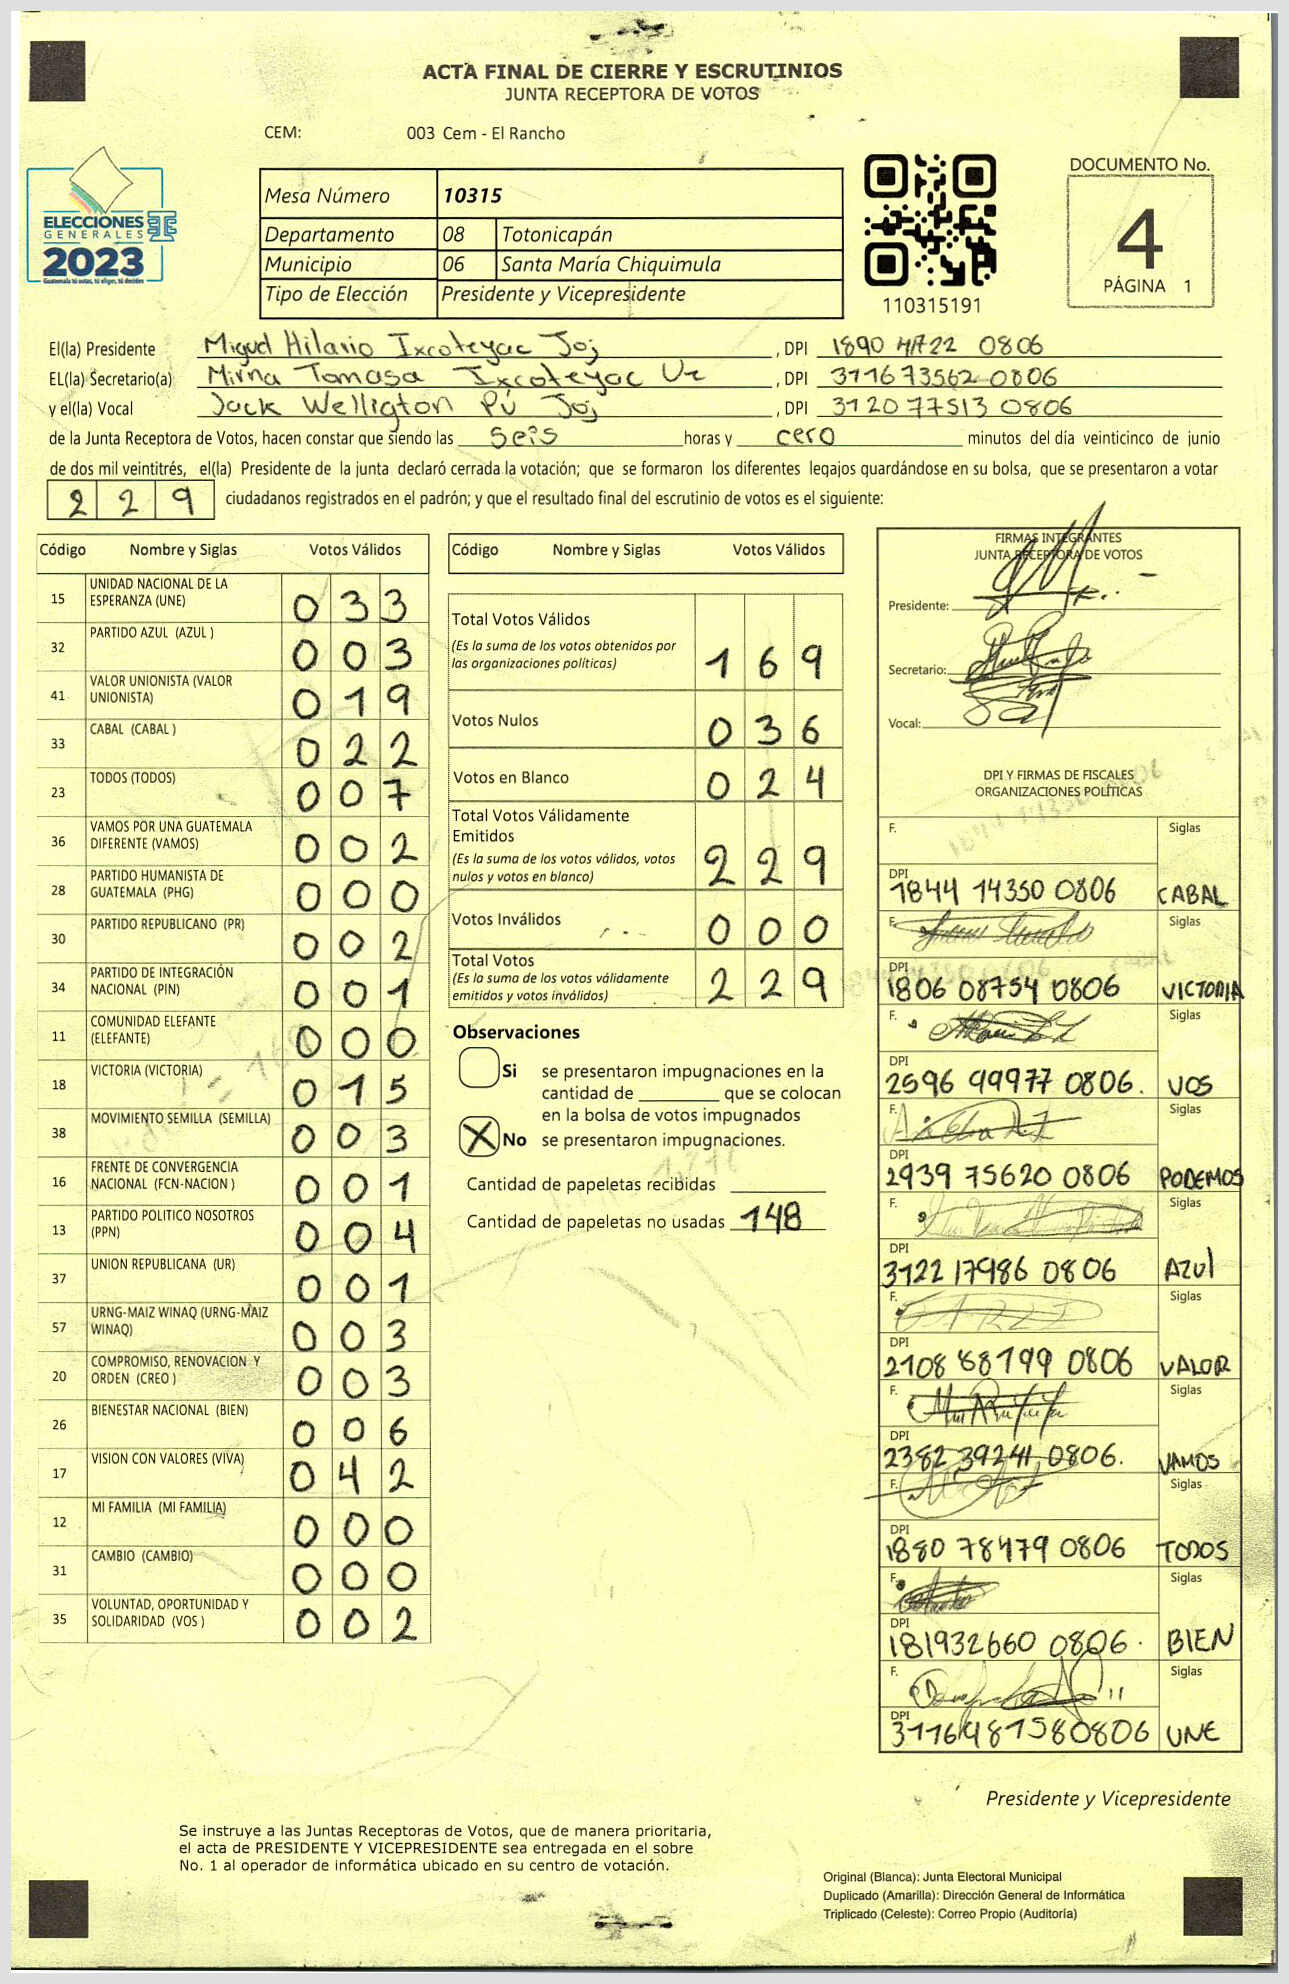 ACTA FINAL DE CIERRE Y ESCRUTINIOS
JUNTA RECEPTORA DE VOTOS
CEM: 003 Cem - El Rancho
ELECCIONES
GENERALES
2023
Guatemala tú votas, tú eliges, tú decides
Mesa Número 10315
Departamento 08 Totonicapán
Municipio 06 Santa María Chiquimula
Tipo de Elección Presidente y Vicepresidente
110315191
DOCUMENTO No.
4
PÁGINA 1
El(la) Presidente Miguel Hilario Ixcoteyac Joj, DPI 1890 41722 0806
EL(la) Secretario(a) Mirna Tomasa Ixcoteyac Ux, DPI 311673562 0806
y el(la) Vocal Jack Welligton Pú Joj, DPI 3120 77513 0806
de la Junta Receptora de Votos, hacen constar que siendo las seis horas y cero minutos del día veinticinco de junio
de dos mil veintitrés, el(la) Presidente de la junta declaró cerrada la votación; que se formaron los diferentes legajos guardándose en su bolsa, que se presentaron a votar
229 ciudadanos registrados en el padrón; y que el resultado final del escrutinio de votos es el siguiente:
Código Nombre y Siglas Votos Válidos
15 UNIDAD NACIONAL DE LA ESPERANZA (UNE) 033
32 PARTIDO AZUL (AZUL ) 003
41 VALOR UNIONISTA (VALOR UNIONISTA) 019
33 CABAL (CABAL ) 022
23 TODOS (TODOS) 007
36 VAMOS POR UNA GUATEMALA DIFERENTE (VAMOS) 002
28 PARTIDO HUMANISTA DE GUATEMALA (PHG) 000
30 PARTIDO REPUBLICANO (PR) 002
34 PARTIDO DE INTEGRACIÓN NACIONAL (PIN) 001
11 COMUNIDAD ELEFANTE (ELEFANTE) 000
18 VICTORIA (VICTORIA) 015
38 MOVIMIENTO SEMILLA (SEMILLA) 003
16 FRENTE DE CONVERGENCIA NACIONAL (FCN-NACION ) 001
13 PARTIDO POLITICO NOSOTROS (PPN) 004
37 UNION REPUBLICANA (UR) 001
57 URNG-MAIZ WINAQ (URNG-MAIZ WINAQ) 003
20 COMPROMISO, RENOVACION Y ORDEN (CREO ) 003
26 BIENESTAR NACIONAL (BIEN) 006
17 VISION CON VALORES (VIVA) 042
12 MI FAMILIA (MI FAMILIA) 000
31 CAMBIO (CAMBIO) 000
35 VOLUNTAD, OPORTUNIDAD Y SOLIDARIDAD (VOS ) 002
Código Nombre y Siglas Votos Válidos
Total Votos Válidos
(Es la suma de los votos obtenidos por
las organizaciones políticas) 169
Votos Nulos 036
Votos en Blanco 024
Total Votos Válidamente
Emitidos
(Es la suma de los votos válidos, votos
nulos y votos en blanco) 229
Votos Inválidos 000
Total Votos
(Es la suma de los votos válidamente
emitidos y votos inválidos) 229
Observaciones
Si se presentaron impugnaciones en la
cantidad de ________ que se colocan
en la bolsa de votos impugnados
X No se presentaron impugnaciones.
Cantidad de papeletas recibidas
Cantidad de papeletas no usadas 148
FIRMAS INTEGRANTES
JUNTA RECEPTORA DE VOTOS
Presidente:
Secretario:
Vocal:
DPI Y FIRMAS DE FISCALES
ORGANIZACIONES POLÍTICAS
F. Siglas
DPI 1844 14350 0806 CABAL
F. Siglas
DPI 1806 08754 0806 VICTORIA
F. Siglas
DPI 2596 99977 0806. VOS
F. Siglas
DPI 2939 75620 0806 PODEMOS
F. Siglas
DPI 3122 17986 0806 AZUl
F. Siglas
DPI 2108 88199 0806 VALOR
F. Siglas
DPI 2382 39241 0806. VAMOS
F. Siglas
DPI 1880 78479 0806 TODOS
F. Siglas
DPI 181932660 0806. BIEN
F. Siglas
DPI 3116481580806 UNE
Presidente y Vicepresidente
Se instruye a las Juntas Receptoras de Votos, que de manera prioritaria,
el acta de PRESIDENTE Y VICEPRESIDENTE sea entregada en el sobre
No. 1 al operador de informática ubicado en su centro de votación.
Original (Blanca): Junta Electoral Municipal
Duplicado (Amarilla): Dirección General de Informática
Triplicado (Celeste): Correo Propio (Auditoría)